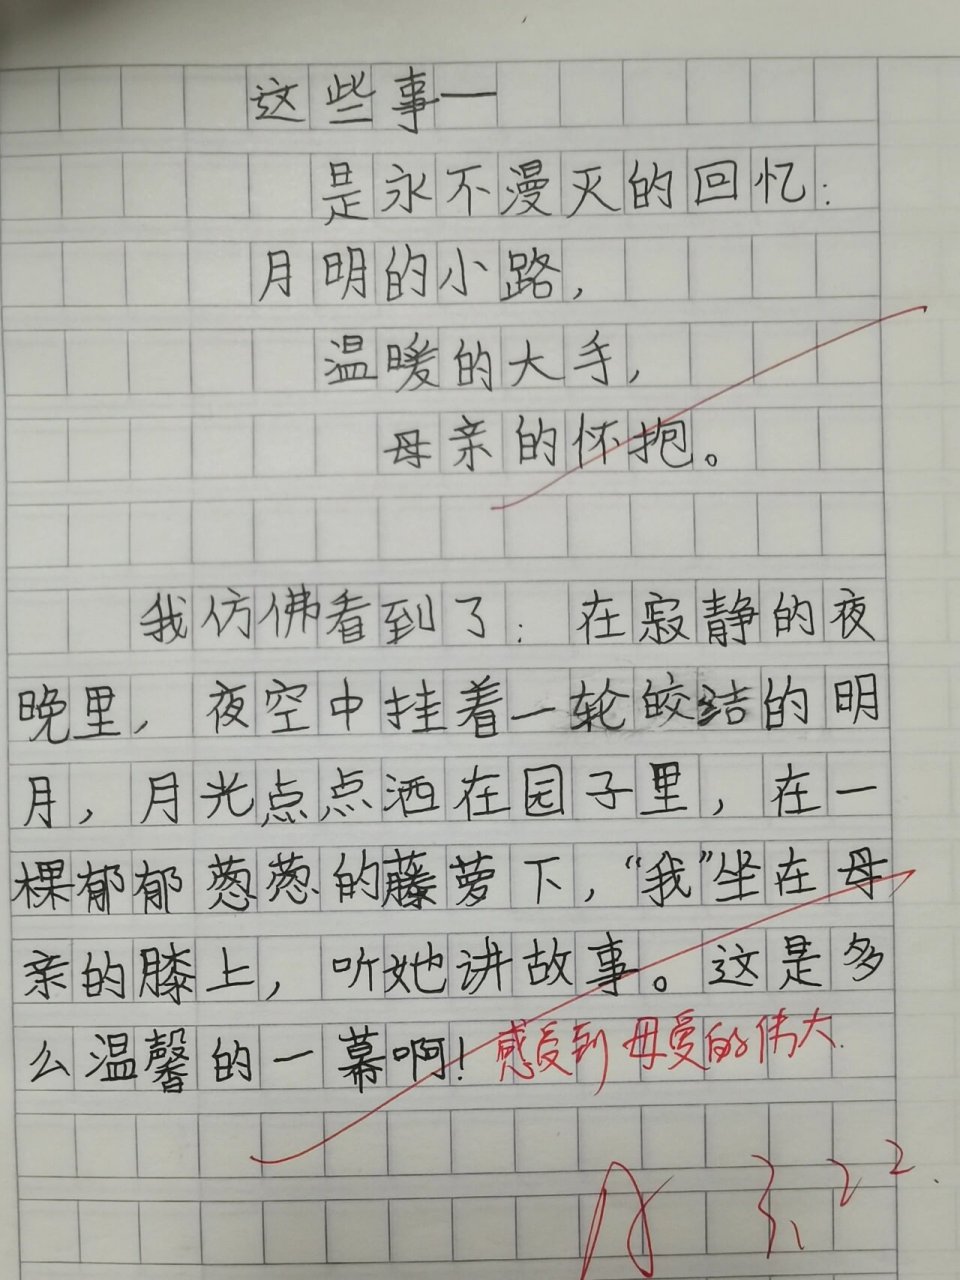 这些事—
是永不漫灭的回忆:
月明的小路,
温暖的大手,
母亲的怀抱。
我仿佛看到了:在寂静的夜
晚里,夜空中挂着一轮皎结的明
月,月光点点洒在园子里,在一
棵郁郁葱葱的藤萝下,“我”坐在母
亲的膝上,听她讲故事。这是多
么温馨的一幕啊!感受到母爱的伟大.
A 3.22